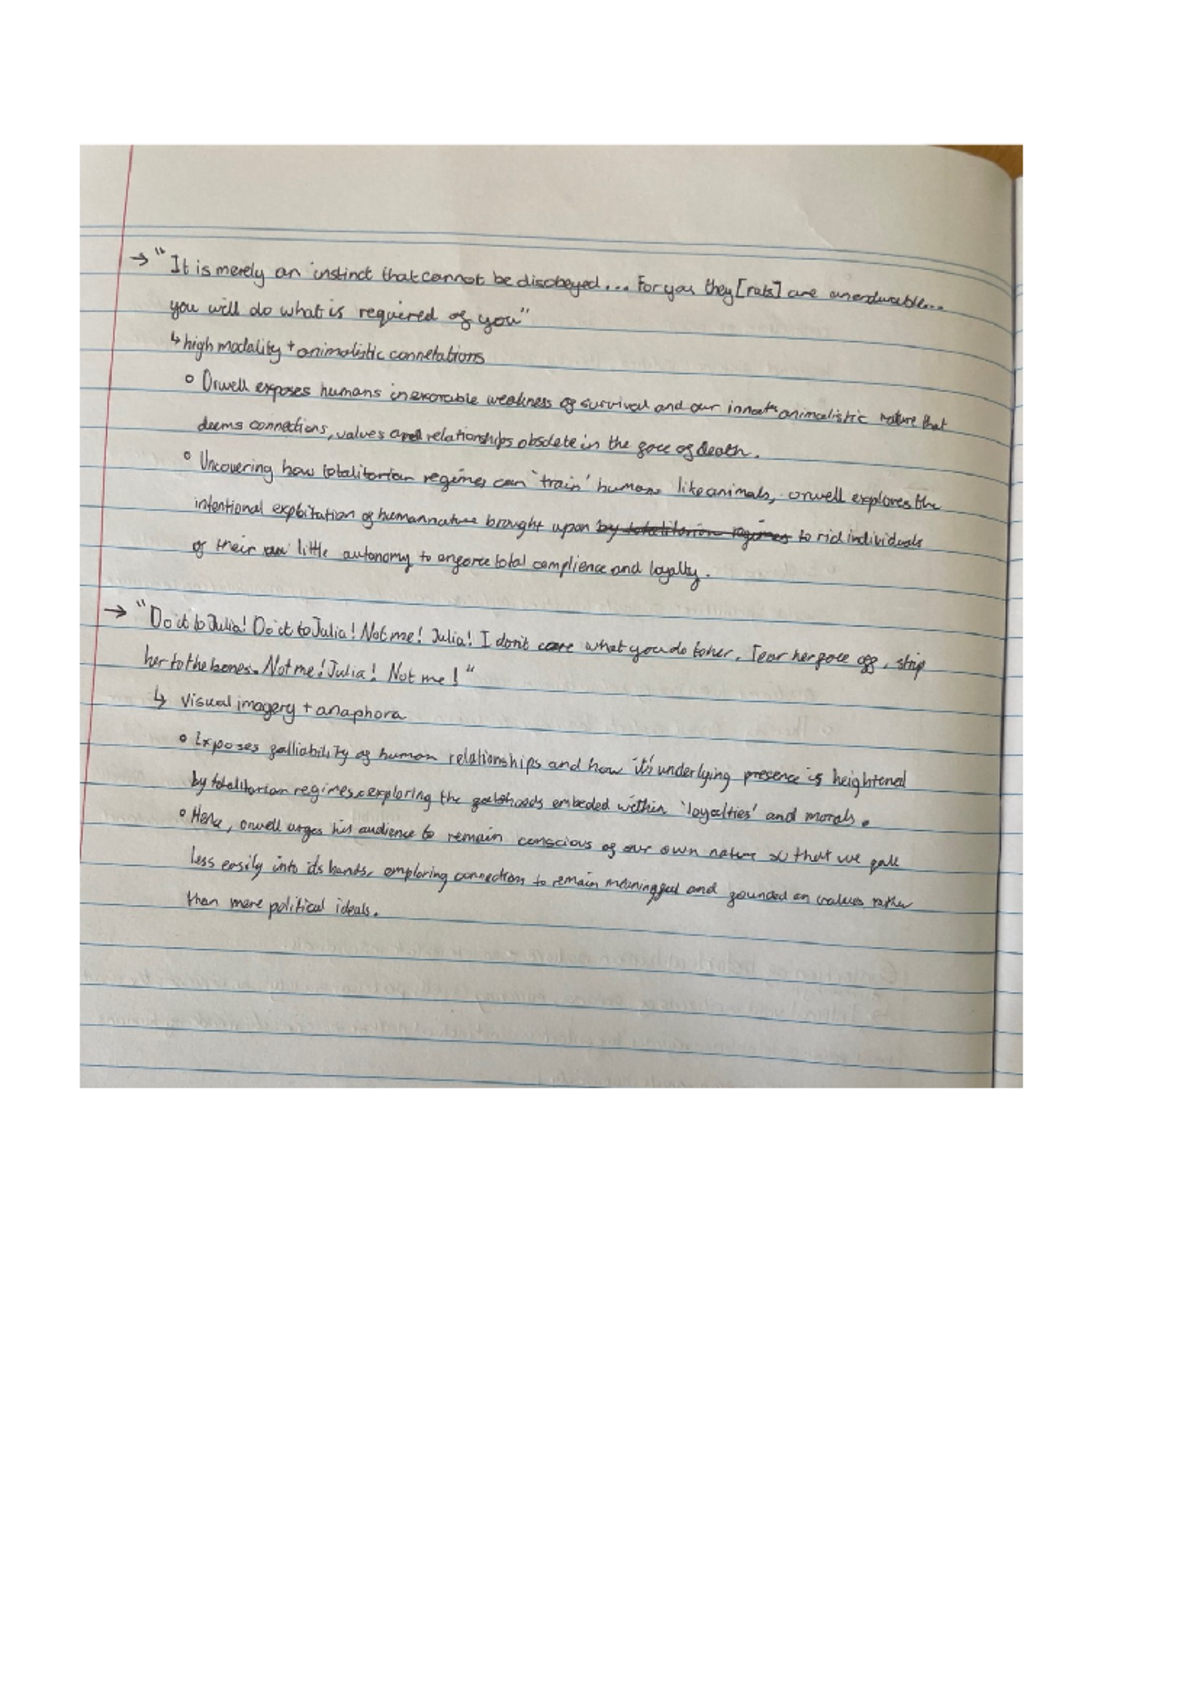 → "It is merely an instinct that cannot be disobeyed... For you they [rats] are unendurable...
you will do what is required of you"
↳ high modality + animalistic connetations
◦ Orwell exposes humans inexorable weakness of survival and our innate animalistic nature that
deems connections, values and relationships obsolete in the face of death.
◦ Uncovering how totalitarian regimes can 'train' humans like animals, orwell explores the
intentional exploitation of human nature brought upon by totalitarian regimes to rid individuals
of their little autonomy to enforce total complience and loyalty.
→ "Do it to Julia! Do it to Julia! Not me! Julia! I don't care what you do to her. Tear her face off, strip
her to the bones. Not me! Julia! Not me!"
↳ Visual imagery + anaphora
◦ Exposes falliability of human relationships and how it's underlying presence is heightened
by totalitarian regimes, exploring the falsehoods embeded within 'loyalties' and morals.
◦ Hence, orwell urges his audience to remain conscious of our own nature so that we fall
less easily into its hands, imploring connections to remain meaningful and gounded on values rather
than mere political ideals.